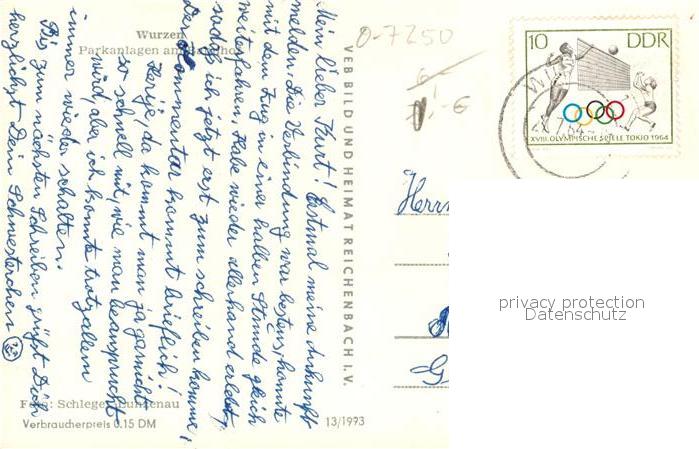 Wurzen
Parkanlagen am
Mein lieber Kurt! Erstmal meine Ankunft
melden. Die Verbindung war bestens, konnte
mit dem Zug in einer halben Stunde gleich
weiterfahren. Habe wieder allerhand erlebt,
sodaß ich jetzt erst zum schreiben komme,
Der Kommentar kommt brieflich!
Herrje, da kommt man ja garnicht
so schnell mit, wie man beansprucht
wird, aber ich konnte trotzallem
immer wieder schalten.
Bis zum nächsten Schreiben grüßt Dich
herzlichst Dein Schwesterchen
Foto: Schlegel,
Verbraucherpreis 0.15 DM
VEB BILD UND HEIMAT REICHENBACH I. V.
13/1993
0-7250
10 DDR
XVIII. OLYMPISCHE SPIELE TOKIO 1964
Herrn
G
privacy protection
Datenschutz